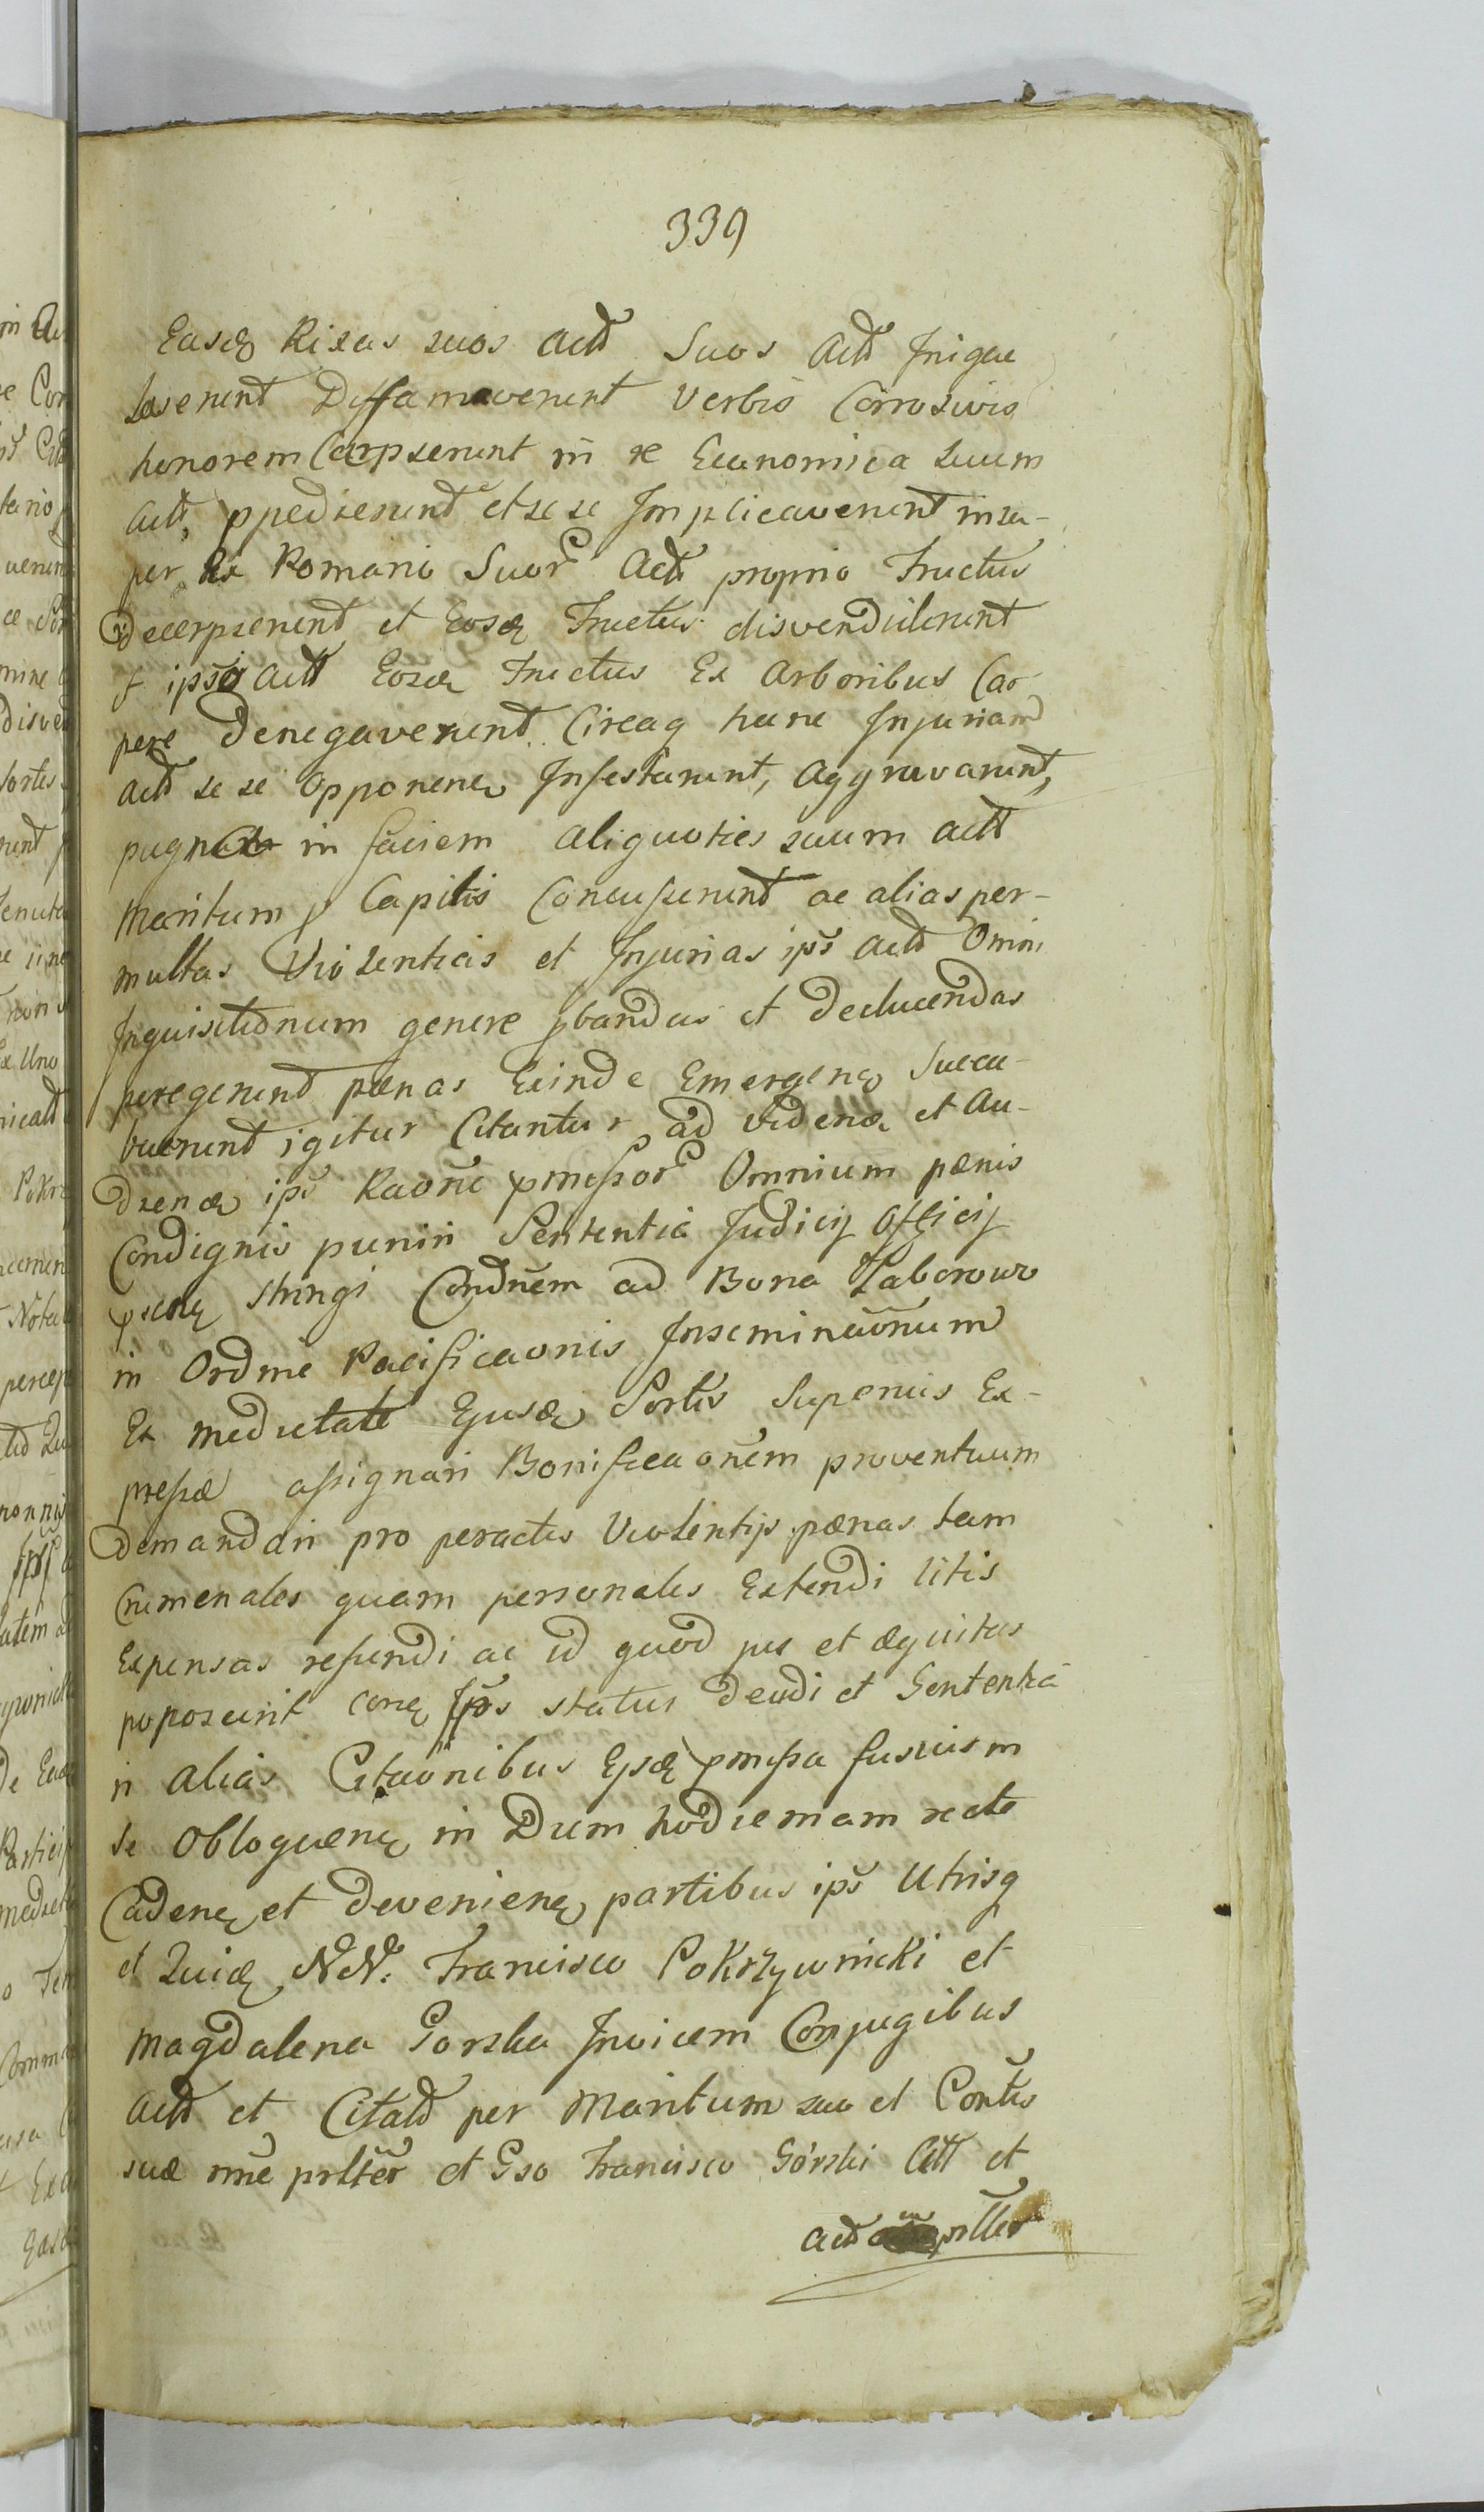 339
Easdq Rixas suos Actt Suos Actt Inique
laeserunt Diffamaverunt Verbis Corrosivis
honorem Carpserunt in re Economica suum
Actt, ppedierunt et sese Implicaverunt insu-
per Ex Pomario Suor Actt proprio Fructus
decerpserunt et Eosdq Fructus disvendiderunt
ipso Actt Eosdq Fructus Ex Arboribus Car-
pere denegaverunt Circaq hanc Injuriam
Actt se se opponenq Infestarunt, Aggravarunt,
pugno in faciem aliquoties suum Actt
Maritum p Capitis Concusserunt ac alias per-
multas Violentias et Injurias ips Actt Omni
Inquisitionum genere pbandas et deducendas
peregerunt paenas Exinde Emergenq Succu-
buerunt igitur Citantur ad videnq et Au-
dienq ips Raone pmissor Omnium paenis
Condignis puniri Sententia Judicij Officij
psentq stringi Condnem ad Bona Zaborowo
in Ordine Pacificaonis Inseminaonum
Ex medietate Ejusdq Sortis Superius Ex-
pressae assignari Bonificaonem proventuum
demandari pro peractis Violentijs paenas tam
Crimenales quam personales Extendi litis
Expensas refundi ac id quod jus et aequitas
poposcerit conq Ips status decidi et Sententia
in alias Citaonibus Ejsdq pmissa fusius in
se Obloquenq in Diem hodiernam recte
Cadenq et devenienq partibus ips Utrisq
et Quidq NN. Francisco Pokrzywnicki et
Magdalena Gorska Invicem Conjugibus
Actt et Citatt per Maritum suo et Contis
suae nne prltter et Gso Francisco Górski Citt et
Actt prltter